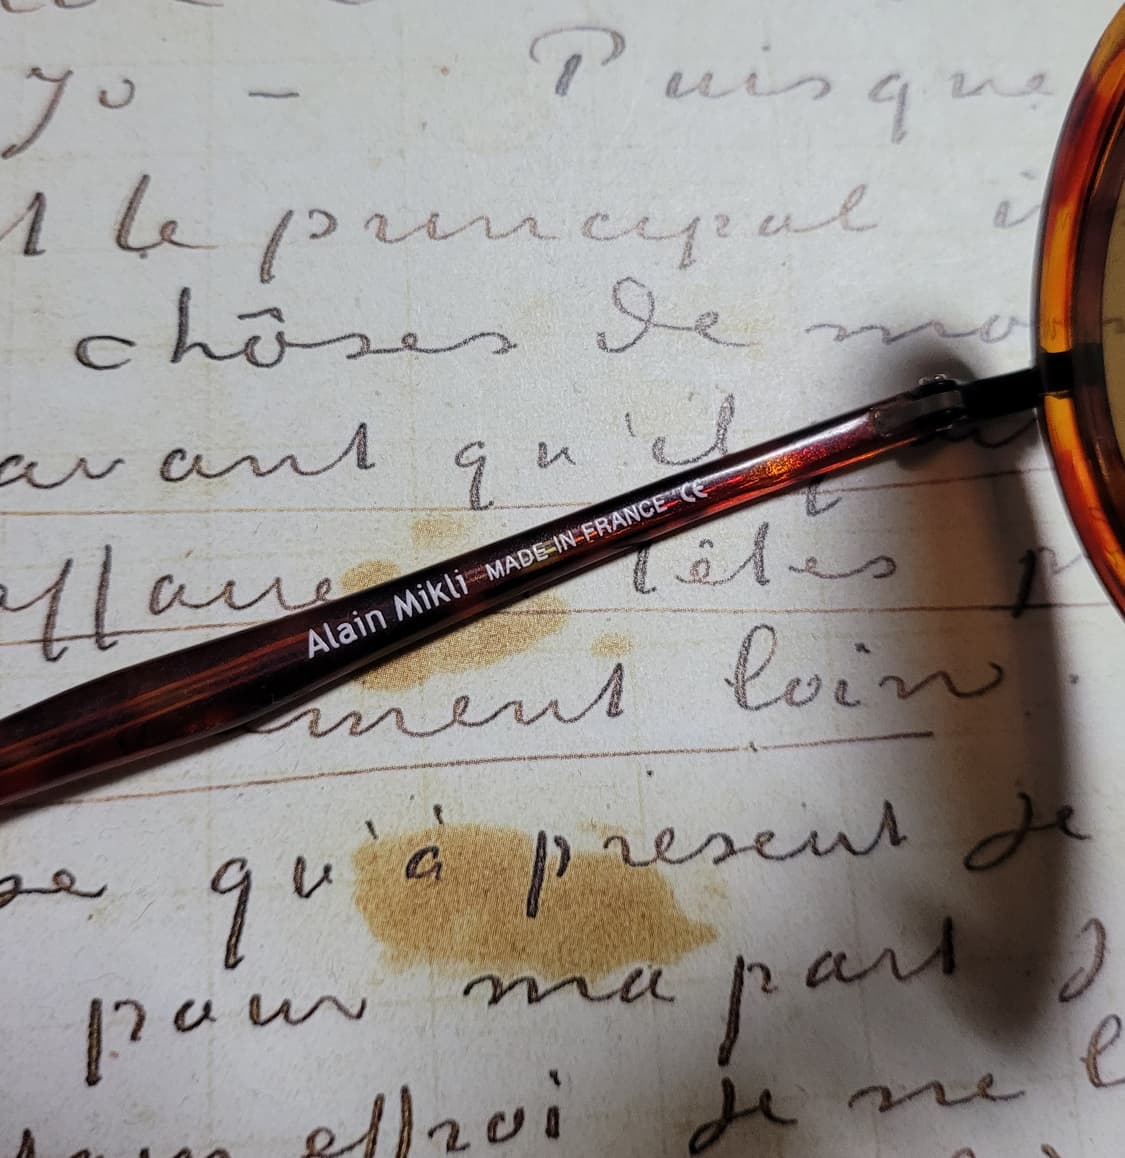 yo - Puisque
t le principal i
chôses de mo
avant qu'il
affaire têtes p
ment loin.
se qu'à present je
pour ma part j
effroi je ne l
Alain Mikli MADE IN FRANCE CE